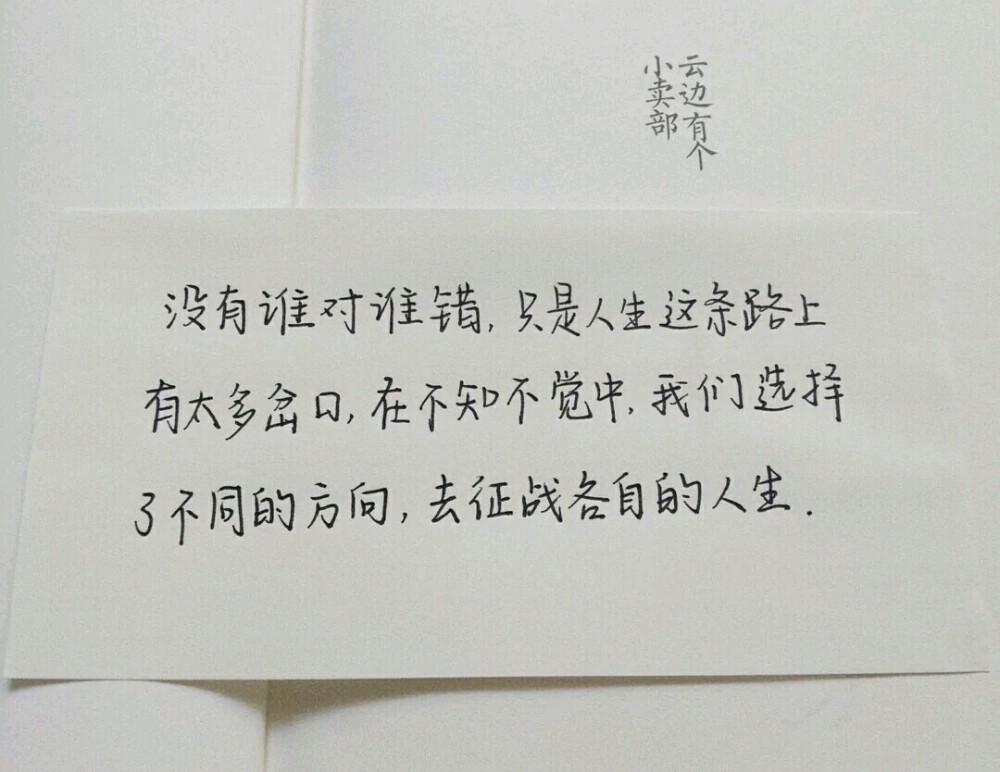 云边有个
小卖部
没有谁对谁错,只是人生这条路上
有太多岔口,在不知不觉中,我们选择
了不同的方向,去征战各自的人生.